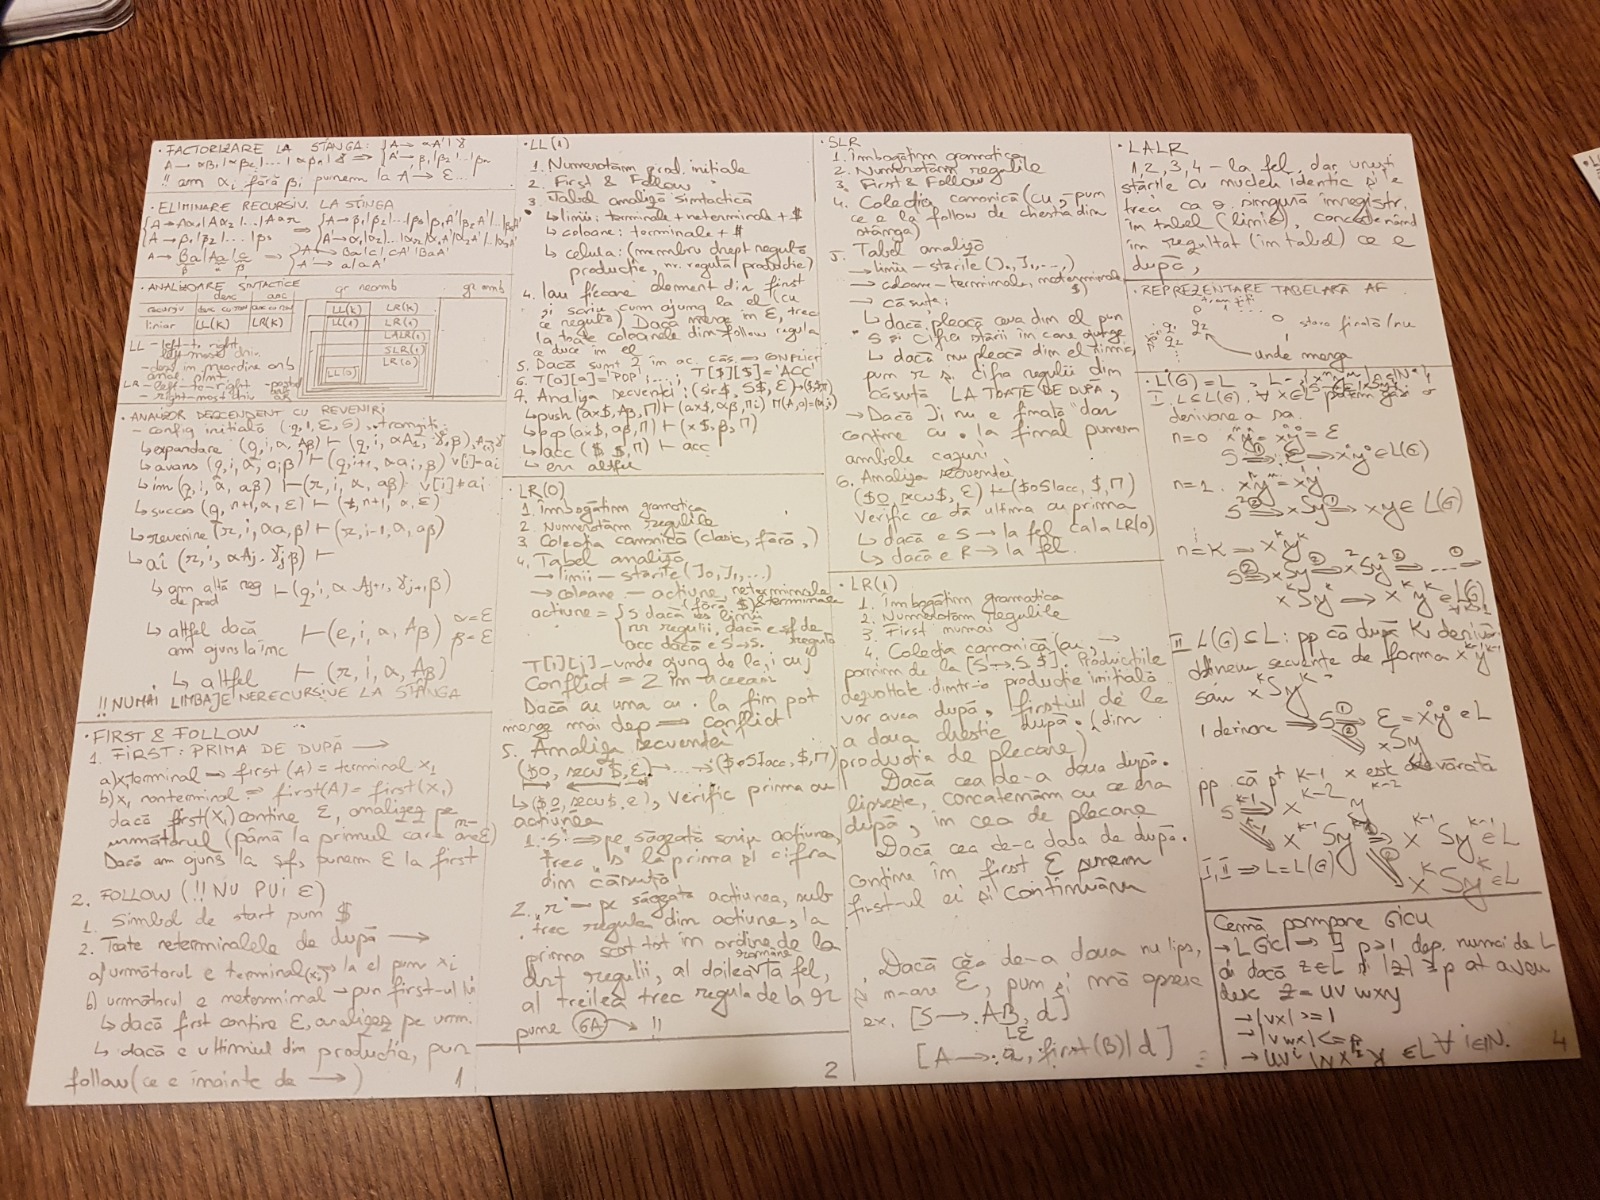 · FACTORIZARE LA STÂNGA: { A → αA' | γ
A → αβ1 | αβ2 | ... | αβn | γ ⟹ { A' → β1 | β2 | ... | βn
!! am αi fără βi punem la A' → ε...
· ELIMINARE RECURSIV. LA STÎNGA
A → β1 | β2 | ... | βs
· ANALIZOARE SINTACTICE
desc asc
recursiv desc cu rev asc cu rev
liniar LL(k) LR(k)
gr neamb
gr amb
LL(k) LR(k)
LL(1) LR(1)
LALR(1)
SLR(1)
LR(0)
LL(0)
LL - left-to right
LR - left-to-right
- right-most
· ANALIZOR DESCENDENT CU REVENIRI
- config inițială (q, 1, ε, S), tranziții:
↳ expandare (q, i, α, Aβ) ⊢ (q, i, αA1, γ1β)
↳ avans (q, i, α, aiβ) ⊢ (q, i+1, αai, β) v[i]=ai
↳ înv (q, i, α, aβ) ⊢ (r, i, α, aβ) v[i]≠ai
↳ succes (q, n+1, α, ε) ⊢ (t, n+1, α, ε)
↳ revenire (r, i, αa, β) ⊢ (r, i-1, α, aβ)
↳ aî (r, i, αAj, γjβ) ⊢
↳ am altă reg ⊢ (q, i, αAj+1, γj+1β)
de prod
↳ altfel dacă ⊢ (e, i, α, Aβ) α=ε
am ajuns la înc β=ε
↳ altfel ⊢ (r, i, α, Aβ)
!! NUMAI LIMBAJE NERECURSIVE LA STÂNGA
· FIRST & FOLLOW
1. FIRST: PRIMA DE DUPĂ →
a) x1 terminal ⟹ first(A) = terminal x1
b) x1 nonterminal ⟹ first(A) = first(x1)
dacă first(x1) conține ε, analizez pe
următorul (până la primul care n-are ε)
Dacă am ajuns la sf, punem ε la first
2. FOLLOW (!! NU PUI ε)
1. Simbol de start pum $
2. Toate neterminalele de după →
a) următorul e terminal (xi) → la el pum xi
b) următorul e neterminal → pun first-ul lui
↳ dacă first conține ε, analizez pe urm.
↳ dacă e ultimul din producție, pun
follow(ce e înainte de →)
1
· LL(1)
1. Numerotăm prod. inițiale
2. First & Follow
3. Tabel analiză sintactică
↳ linii: terminale + neterminale + $
↳ coloane: terminale + $
↳ celula: (membru drept regulă
producție, nr. regulă producție)
4. Iau fiecare element din first
și scriu cum ajung la el (cu
ce regulă). Dacă merge în ε, trec
la toate coloanele din follow regula
ce duce în el
5. Dacă sunt 2 în ac. căs. ⟹ CONFLICT
6. T[a][a] = 'POP', ...; T[$][$] = 'ACC'
7. Analiza secvenței:
↳ push (ax$, Aβ, Π) ⊢ (ax$, αβ, Πi) M(A,a)=(α,i)
↳ pop (ax$, aβ, Π) ⊢ (x$, β, Π)
↳ acc ($, $, Π) ⊢ acc
↳ err altfel
· LR(0)
1. Îmbogățim gramatica
2. Numerotăm regulile
3. Colecția canonică (clasic, fără ,)
4. Tabel analiză
→ linii - stările (I0, I1, ...)
→ coloane - acțiune, neterminale
(fără $) & terminale
nr regulii, dacă e sf de regulă
acc dacă e S'→S.
T[i][j] - unde ajung de la i cu j
Conflict = 2 în aceeași
Dacă au una cu . la fin pot
merge mai dep ⟹ conflict
5. Analiza secvenței
($0, secv$, ε) ⊢ ... ⊢ ($0S1acc, $, Π)
↳ ($0, secv$, ε), verific prima cu
acțiunea
1. "s" ⟹ pe săgeată scriu acțiunea,
trec "s" la prima și cifra
din căsuță
2. "r" → pe săgeată acțiunea, sub
trec regula din acțiune, la
prima scot tot în ordine de la
drt regulii, al doilea rămâne la fel,
al treilea trec regula de la r
pume GA → !!
2
· SLR
1. Îmbogățim gramatica
2. Numerotăm regulile
3. First & Follow
4. Colecția canonică (cu , - pum
ce e la follow de chestia din
stânga)
5. Tabel analiză
→ linii - stările (I0, I1, ...)
→ coloane - terminale, neterminale
$)
→ căsuțe:
↳ dacă pleacă ceva din el pun
s și cifra stării în care ajunge
↳ dacă nu pleacă din el nimic
pum r și cifra regulii din
căsuță LA TOATE DE DUPĂ ,
→ Dacă Ii nu e finală dar
conține cu . la final punem
ambele cazuri
6. Analiza secvenței
($0, secv$, ε) ⊢ ($0S1acc, $, Π)
Verific ce dă ultima cu prima
↳ dacă e S → la fel ca la LR(0)
↳ dacă e R → la fel.
· LR(1)
1. Îmbogățim gramatica
2. Numerotăm regulile
3. First numai
4. Colecția canonică (cu , →
pornim de la [S'→.S, $]. Producțiile
dezvoltate dintr-o producție inițială
vor avea după , first-ul de la
a doua chestie după . (din
producția de plecare)
Dacă cea de-a doua după .
lipsește, concatenăm cu ce era
după , în cea de plecare
Dacă cea de-a doua de după .
conține în first ε punem
first-ul ei și continuăm
Dacă cea de-a doua nu lips,
și n-are ε, pum și mă opresc
ex. [S → .AB, d]
[A → .a, first(B) | d]
· LALR
1, 2, 3, 4 - la fel, dar unești
stările cu nucleu identic și le
treci ca o singură înregistr.
în tabel (linie), concatenând
în rezultat (în tabel) ce e
după ,
· REPREZENTARE TABELARĂ AF
stare finală/nu
unde merge
· L(G) = L, L = {x^n y^n | n ∈ N*}
I. L ⊆ L(G). ∀ x ∈ L putem găsi o
derivare a sa.
n=0 x^n y^n = x^0 y^0 = ε
S ⟹ ε ⟹ x^0 y^0 ∈ L(G)
n=1. x^n y^n = x^1 y^1
S ⟹ xSy ⟹ xy ∈ L(G)
n=k ⟹ x^k y^k
II L(G) ⊆ L: pp că după k derivări
obținem secvențe de forma x^k y^k
sau x^k S y^k
1 derivare ⟹ S ⟹ ε = x^0 y^0 ∈ L
xSy
I, II ⟹ L = L(G)
Lemă pompare GICU
→ L GIC ⟹ ∃ p ≥ 1 dep. numai de L
aî dacă z ∈ L și |z| ≥ p at avem
desc z = uvwxy
→ |vx| >= 1
→ |vwx| <= p
→ uv^i wx^i y ∈ L ∀ i ∈ N.
4